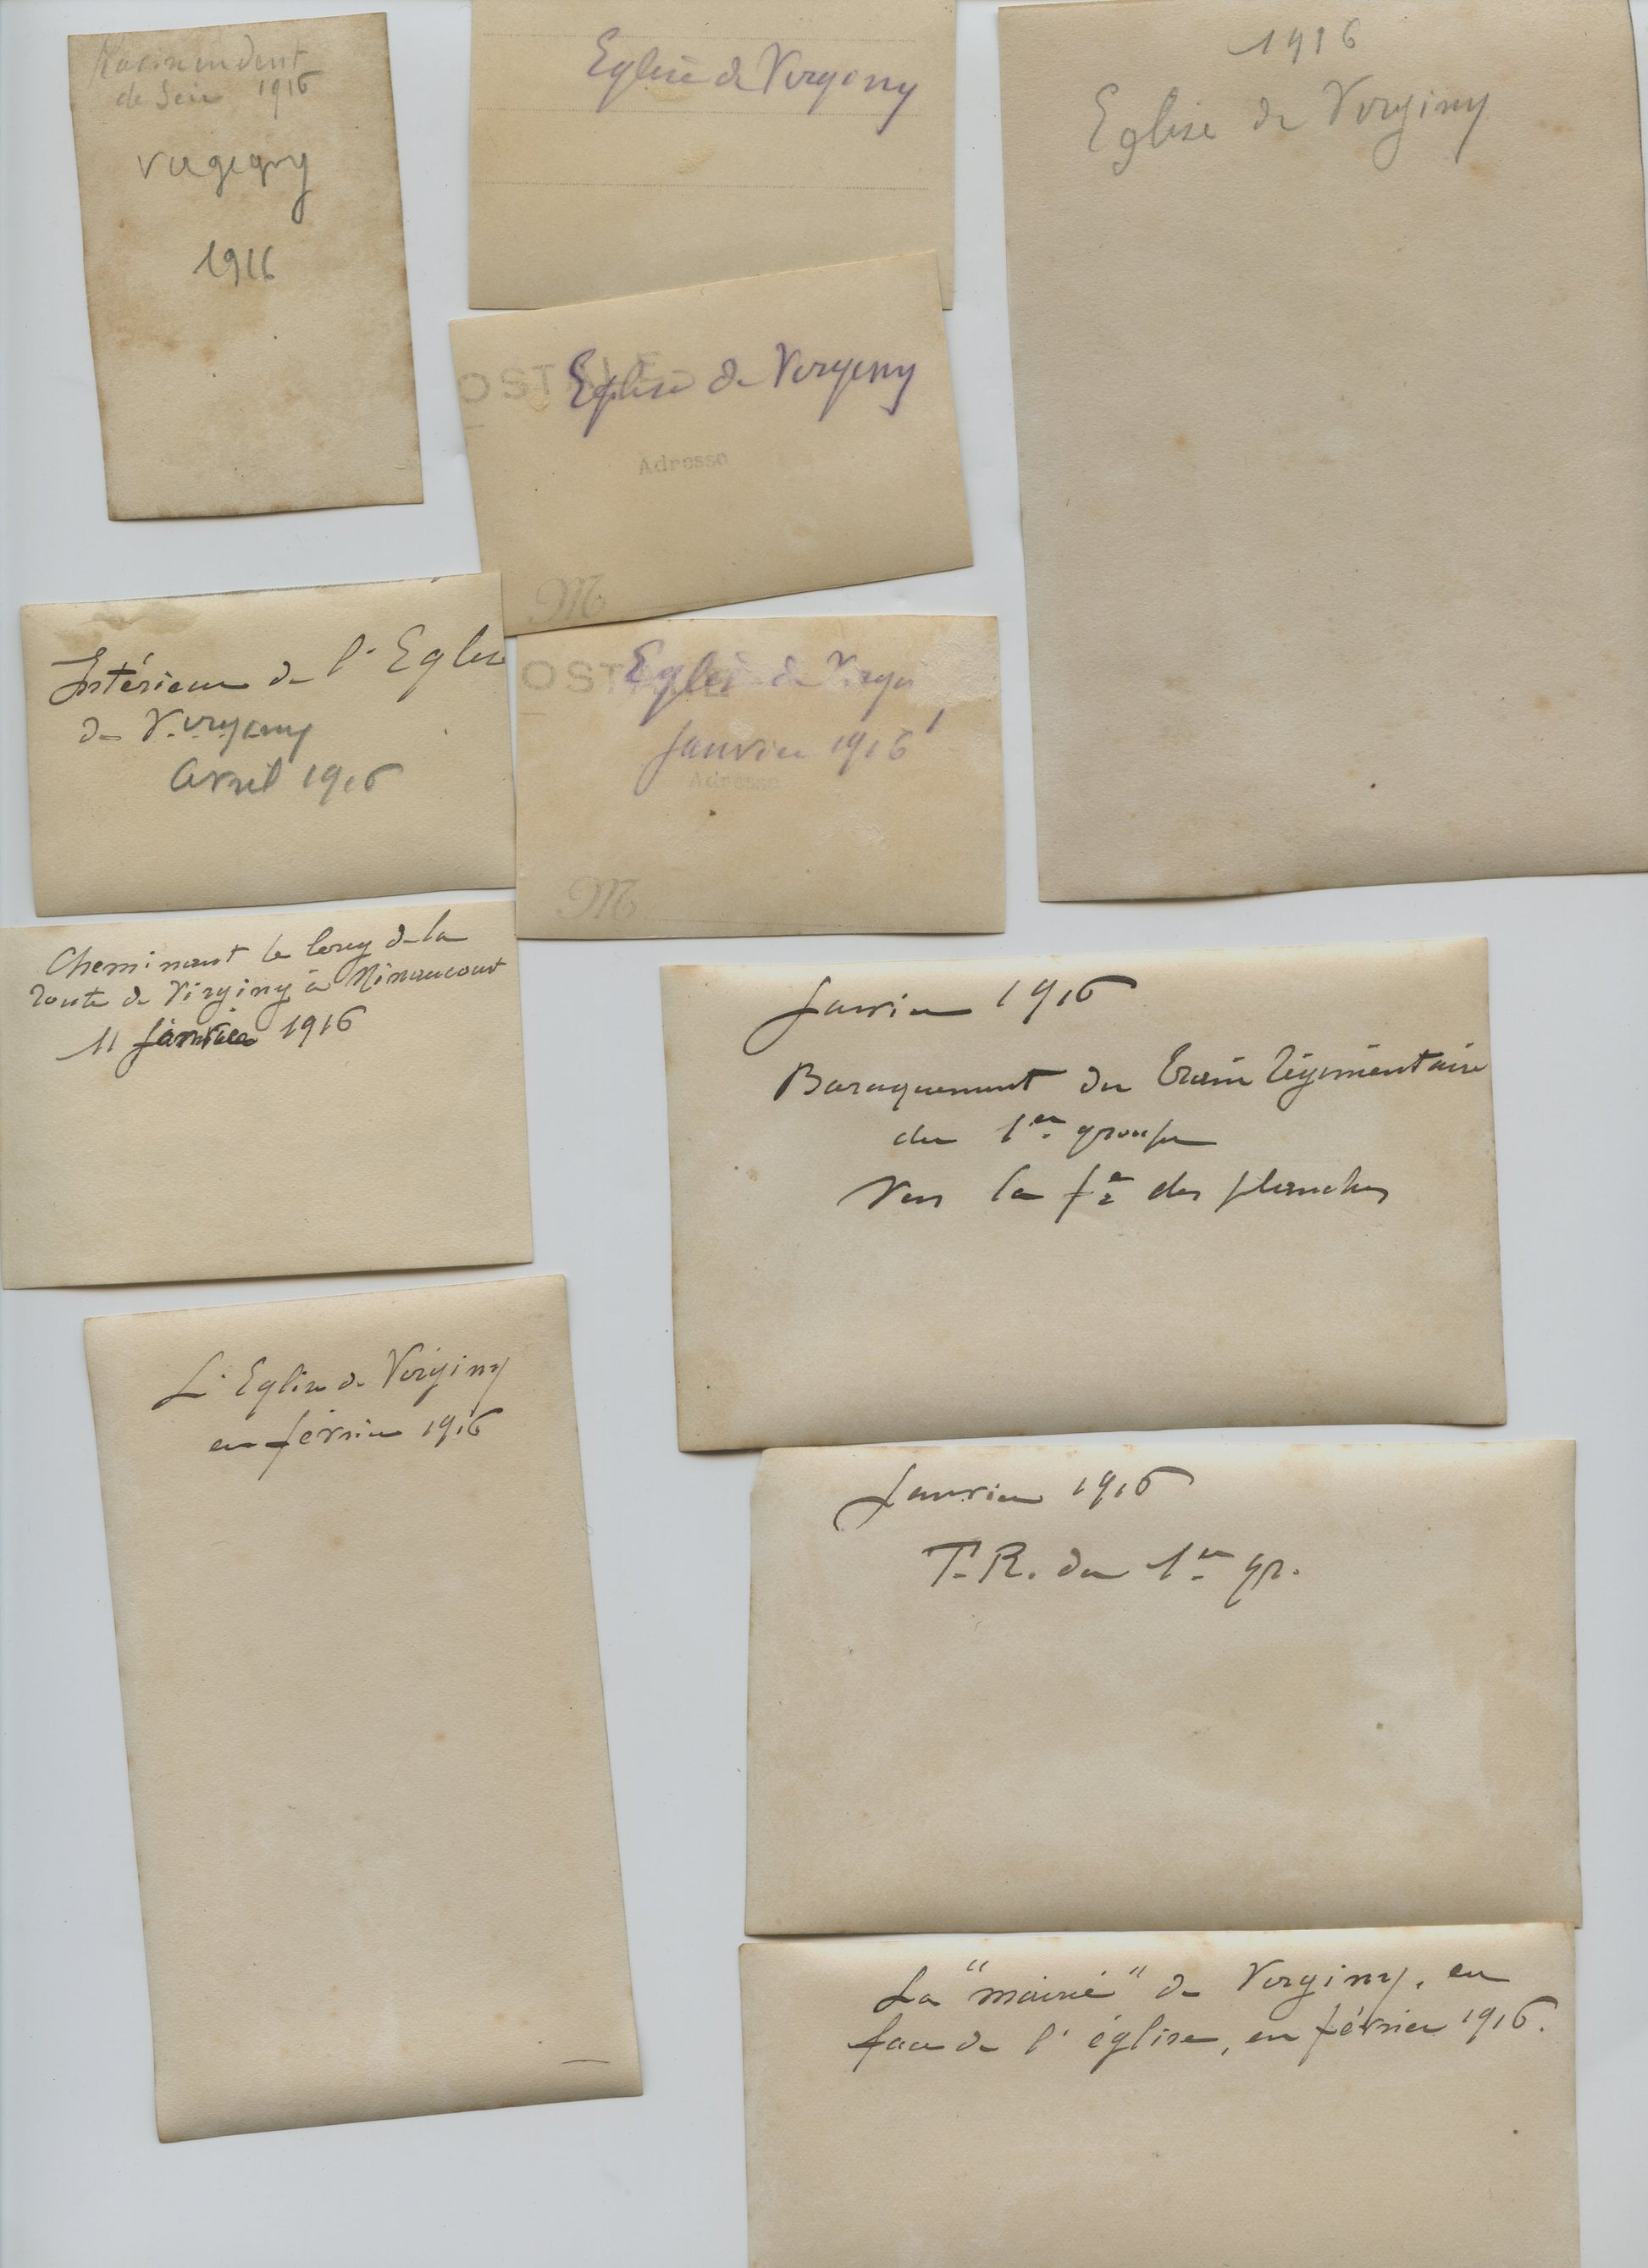 de 1916
Virgigny
1916
Eglise de Virginy
1916
Eglise de Virginy
OSTALE
Eglise de Virginy
Adresse
M
Intérieur de l'Eglise
de Virginy
Avril 1916
OST
Eglise de Virgi
Janvier 1916
Adresse
M
Cheminant le long de la
route de Virginy à Minaucourt
11 janvier 1916
Janvier 1916
Baraquement du train régimentaire
du 1er groupe
Vers la fe des planches
L'Eglise de Virginy
en février 1916
Janvier 1916
T.R. du 1er gr.
La "mairie" de Virginy, en
face de l'église, en février 1916.